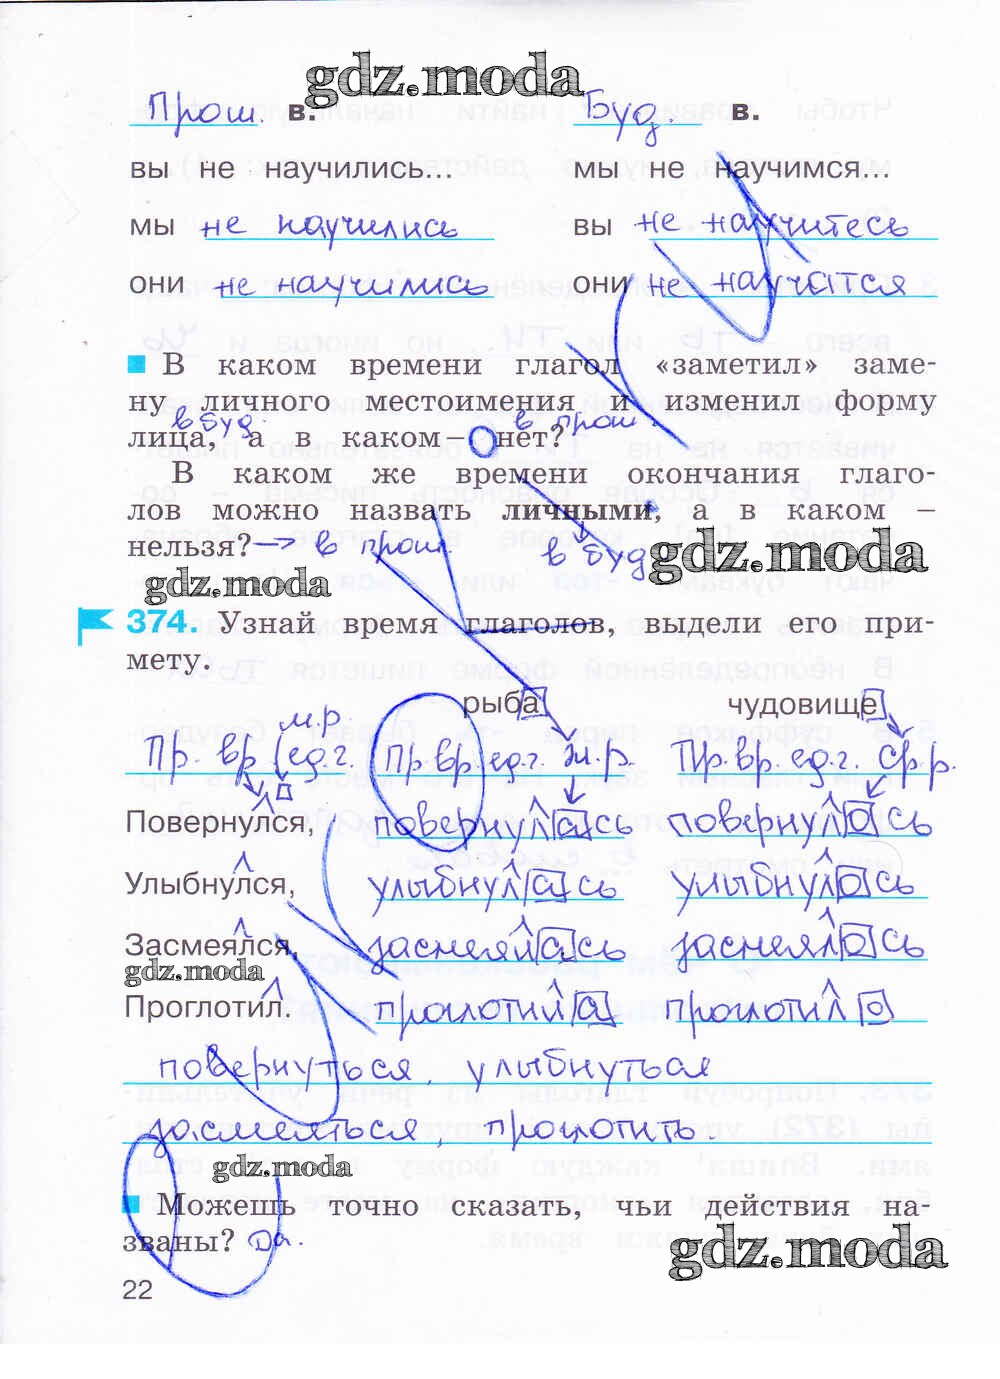 gdz.moda
Прош. в. Буд. в.
вы не научились... мы не научимся...
мы не научились вы не научитесь
они не научились они не научатся
В каком времени глагол «заметил» заме-
ну личного местоимения и изменил форму
в буд. в прош.
лица, а в каком – нет?
В каком же времени окончания глаго-
лов можно назвать личными, а в каком –
нельзя? → в прош. в буд.
gdz.moda
gdz.moda
374. Узнай время глаголов, выдели его при-
мету.
рыба чудовище
м.р.
Пр. вр. ед.г. Пр.вр. ед.г. ж.р. Пр.вр. ед.г. ср.р.
Повернулся, повернулась повернулось
Улыбнулся, улыбнулась улыбнулось
Засмеялся, засмеялась засмеялось
gdz.moda
Проглотил. проглотила проглотило
повернуться, улыбнуться
засмеяться, проглотить.
gdz.moda
Можешь точно сказать, чьи действия на-
званы? Да.
gdz.moda
22